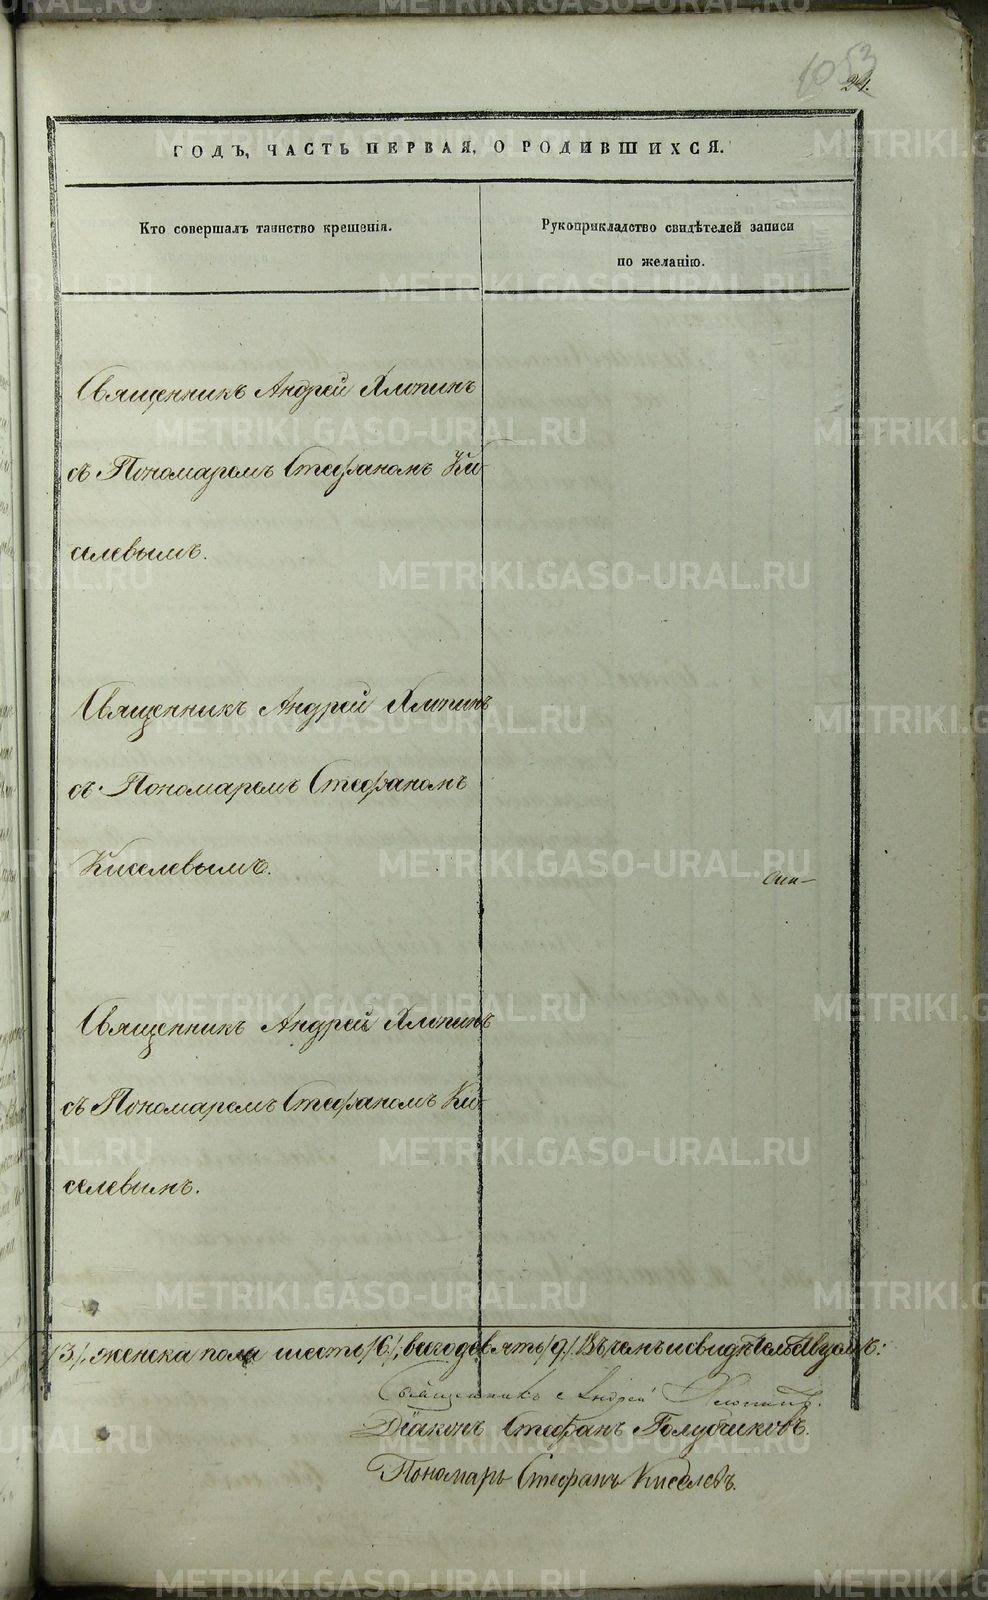 1053
24.
ГОДЪ, ЧАСТЬ ПЕРВАЯ, О РОДИВШИХСЯ.
Кто совершалъ таинство крещенія.
Рукоприкладство свидѣтелей записи
по желанію.
Священникъ Андрей Хлопинъ
съ Пономаремъ Стефаномъ Ки-
селевымъ.
Священникъ Андрей Хлопинъ
съ Пономаремъ Стефаномъ
Киселевымъ.
Священникъ Андрей Хлопинъ
съ Пономаремъ Стефаномъ Ки-
селевымъ.
/3/, женска пола шесть /6/; всего девять /9/. Въ чемъ и свидѣтельствуемъ:
Священникъ Андрей Хлопинъ.
Діаконъ Стефанъ Голубчиковъ.
Пономарь Стефанъ Киселевъ.
METRIKI.GASO-URAL.RU